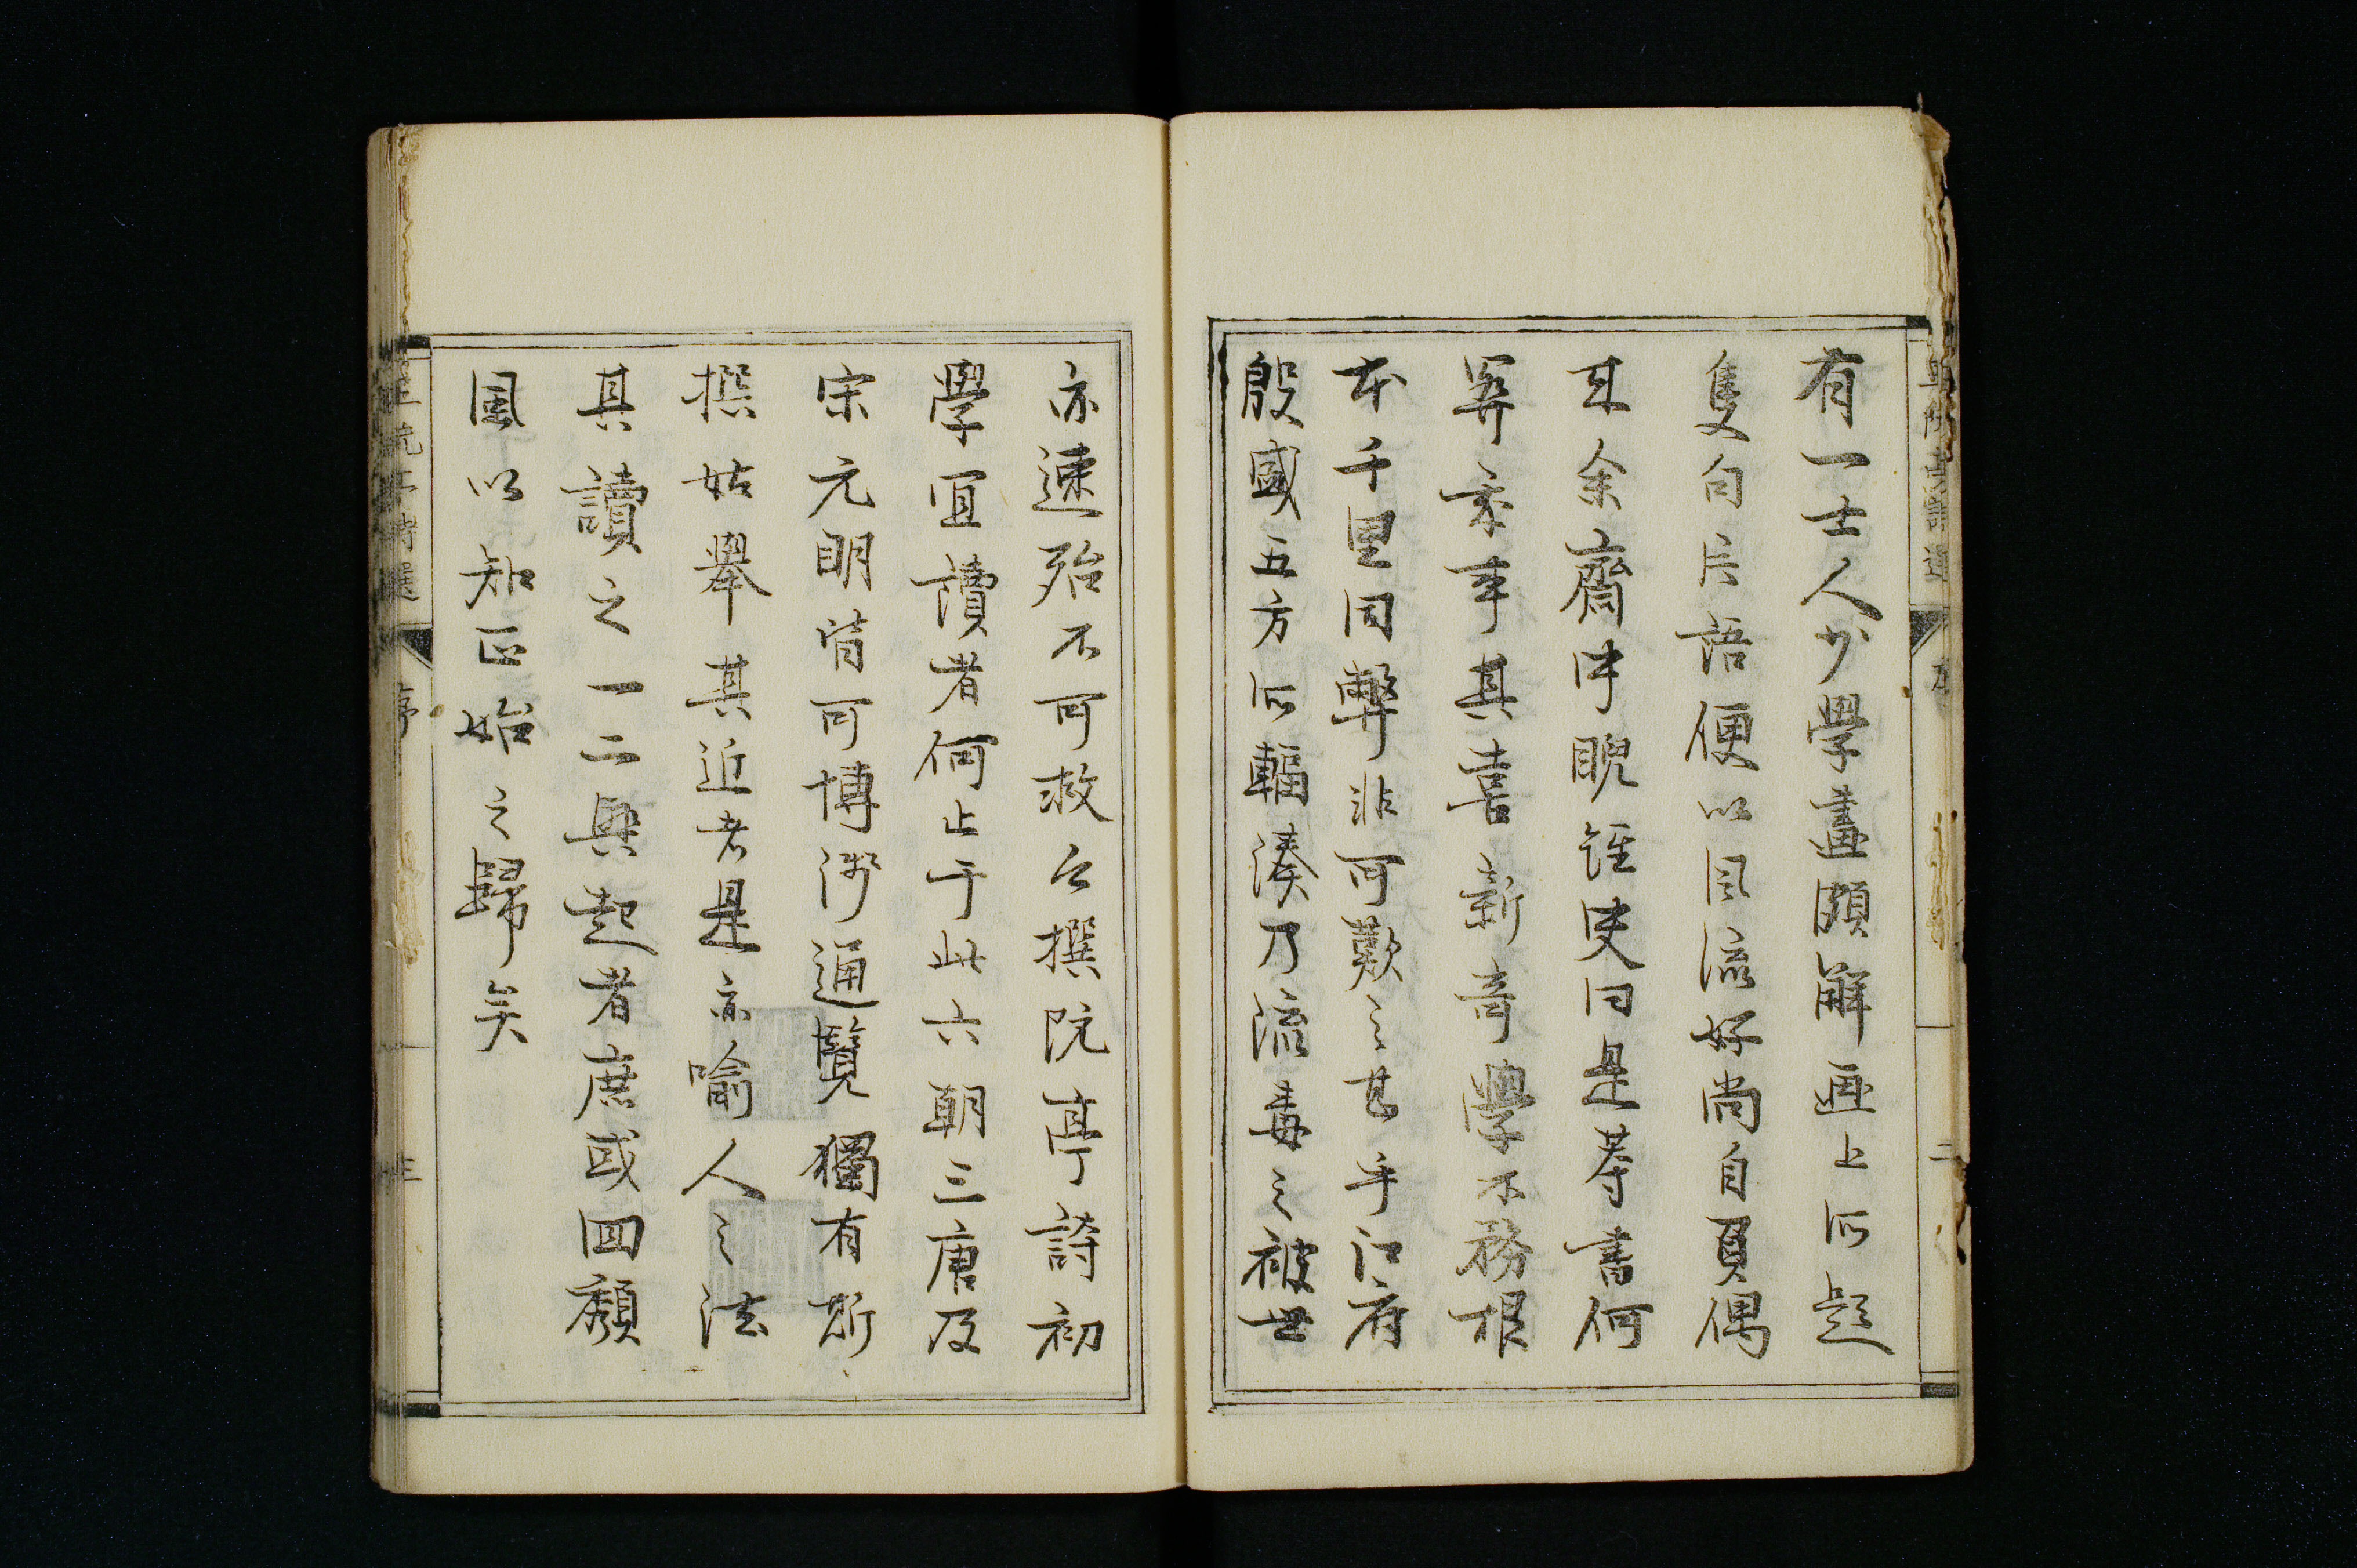 有一士人少學畫頗解画上所題
隻句片語便以風流好尚自負偶
來余齋中睨經史曰是等書何
異求事其喜新奇學不務根
本千里同弊非可歎之甚乎江府
殷盛五方所輻湊乃流毒之被世
亦速殆不可救今撰阮亭詩初
學宜讀者何止于此六朝三唐及
宋元明皆可博涉通覽獨有斯
撰姑舉其近者是亦喻人之法
其讀之一二興起者庶或回頽
風以知正始之歸矣
序
二
序
三